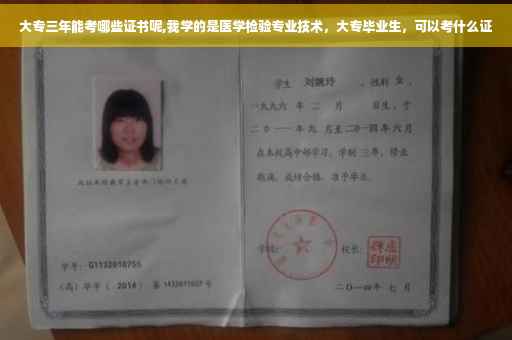 大专三年能考哪些证书呢,我学的是医学检验专业技术，大专毕业生，可以考什么证
学生 刘婉玲 ，性别 女 ，
一九九六 年 二 月 日生，于
二〇一一 年 九 月至 二〇一四 年 六 月
在本校高中部学习，学制 三 年，修业
期满，成绩合格，准予毕业。
学校： 校长：
学号： G1132010755
（高）毕字（ 2014 ）第 1432011027 号
二〇一四年 七 月